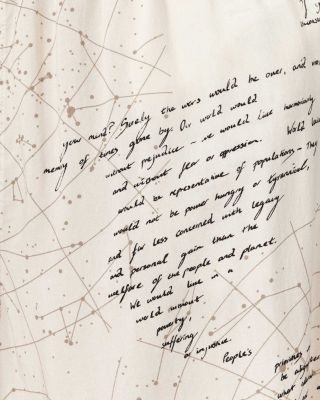 your mind? Surely the wars would be over, and
memory of times gone by. Our world would
without prejudice – we would live harmoniously
and without fear or oppression. World
would be representative of populations – they
would not be power hungry or tyrannical,
and far less concerned with legacy
and personal gain than the
welfare of the people and planet.
We would live in a
world without
poverty,
suffering
or injustice.
People's
be
what